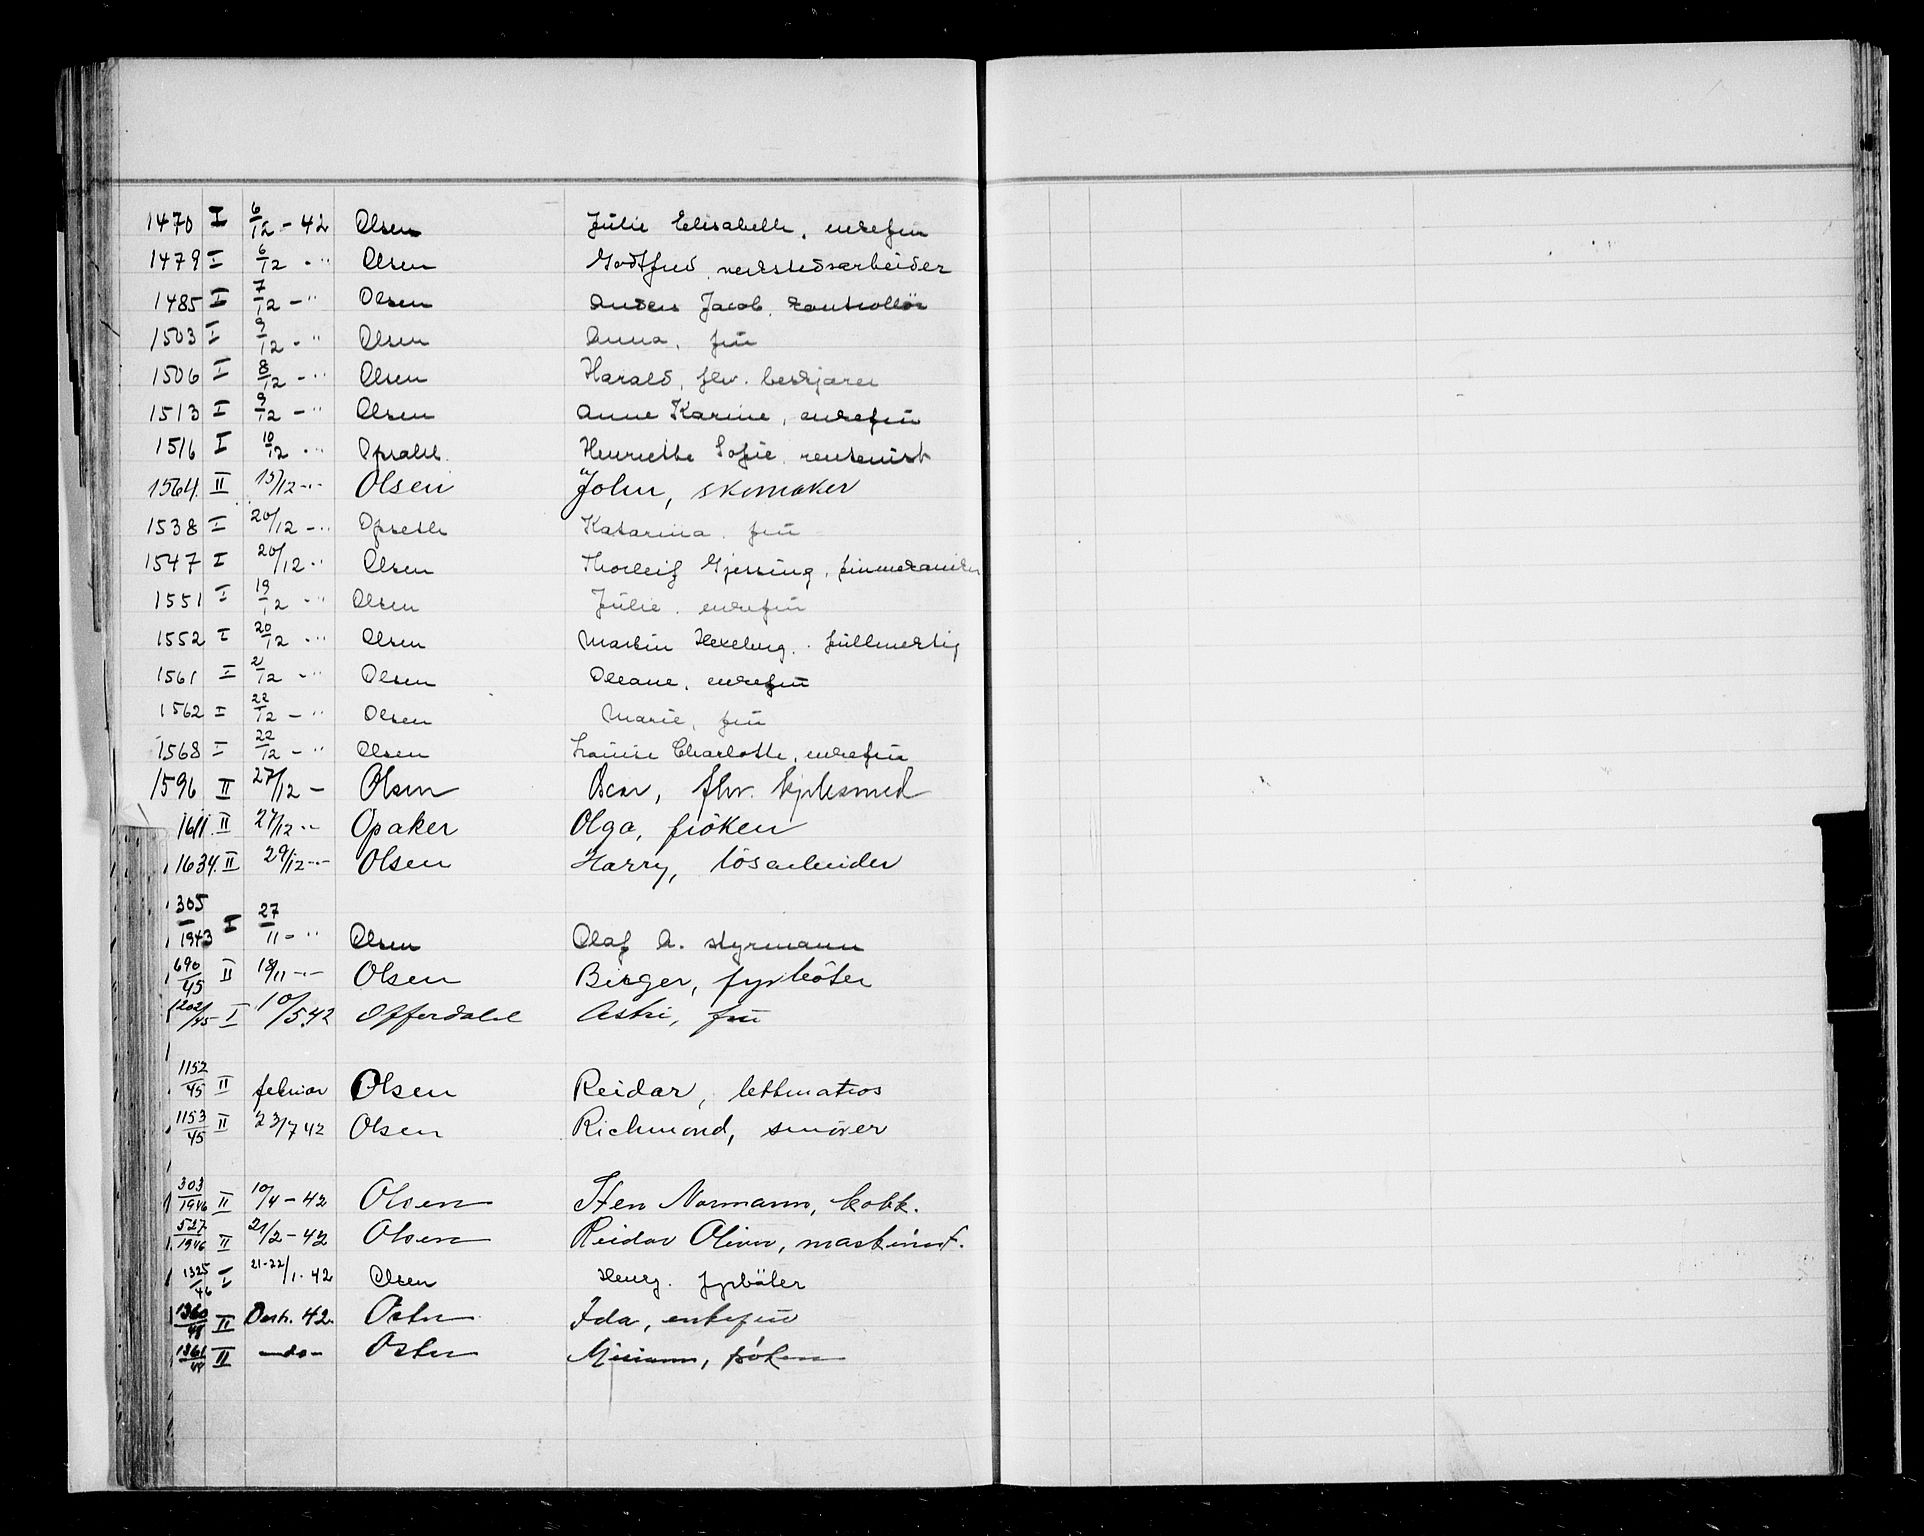 1470 I 6/12 - 42 Olsen Julie Elisabeth, enkefru
1479 I 6/12 - " Olsen Godtfred verkstedsarbeider
1485 I 7/12 - " Olsen Anders Jacob, kontrollör
1503 I 9/12 - " Olsen Anna, fru
1506 I 8/12 - " Olsen Harald, fhv.
1513 I 9/12 - " Olsen Anne Karine, enkefru
1516 I 10/12 - " Opsahl Henriette Sofie rentenist
1564. II 15/12 -"- Olsen John, skomaker
1538 I 20/12 - " Opseth Katarina fru
1547 I 20/12 - " Olsen Thorleif Gjessing, finmekaniker
1551 I 19/12 - " Olsen Julie, enkefru
1552 I 20/12 - " Olsen Martin fullmektig
1561 I 21/12 - " Olsen Oleane, enkefru
1562 I 22/12 - " Olsen Marie, fru
1568 I 22/12 - " Olsen Louise Charlotte, enkefru
1596 II 27/12 - Olsen Oscar, fhv. kjelesmed
1611. II 27/12 -"- Opaker Olga, fröken
1634. II 29/12 -"- Olsen Harry, lösarbeider
305/1943 I 27/11 - " Olsen Olaf A. styrmann
690/45 II 18/11 -"- Olsen Birger, fyrböter
1202/45 I 10/5.42 Offerdahl Astri, fru
1152/45 II februar Olsen Reidar, lettmatros
1153/45 II 23/7 42 Olsen Richmond, smörer
303/1946 II 10/4 - 42 Olsen Sten Normann, kokk.
527/1946 II 21/2 - 42 Olsen Reidar Oliver, maskinist.
1325/46 I 21-22/1. 42 Olsen Henry. fyrböter
1360/48 II 42. Oster Ida, enkefru
1361/48 II -do- Oster Miriam, fröken